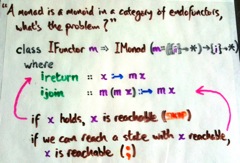 "A monad is a monoid in a category of endofunctors,
what's the problem?"
class IFunctor m => IMonad (m::({i}->*)->{i}->*)
where
ireturn :: x :-> m x
ijoin :: m (m x) :-> m x
if x holds, x is reachable
if we can reach a state with x reachable,
x is reachable (;)